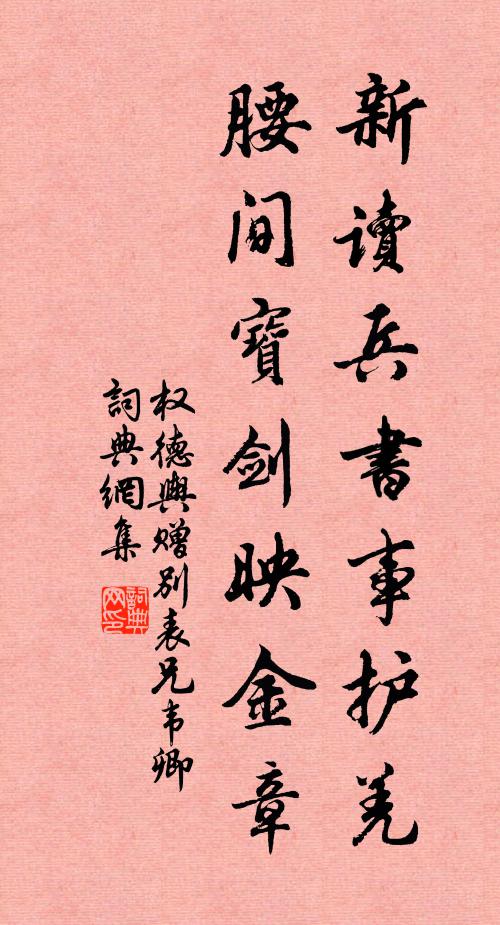 新讀兵書事护羌
腰间寶劍映金章
权德輿赠别表兄韦卿
詞典網集
詞典网印